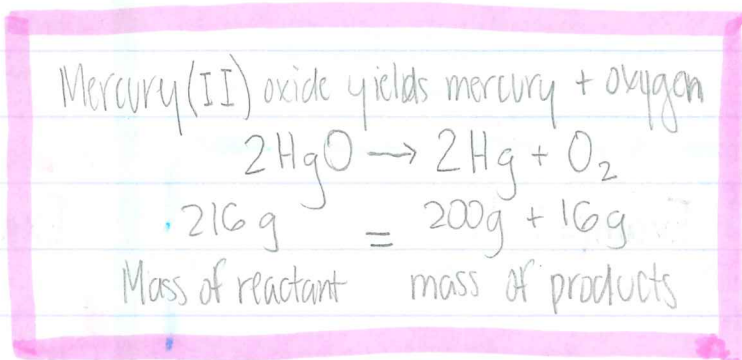 Mercury(II) oxide yields mercury + oxygen
2HgO → 2Hg + O₂
216 g = 200g + 16g
Mass of reactant mass of products